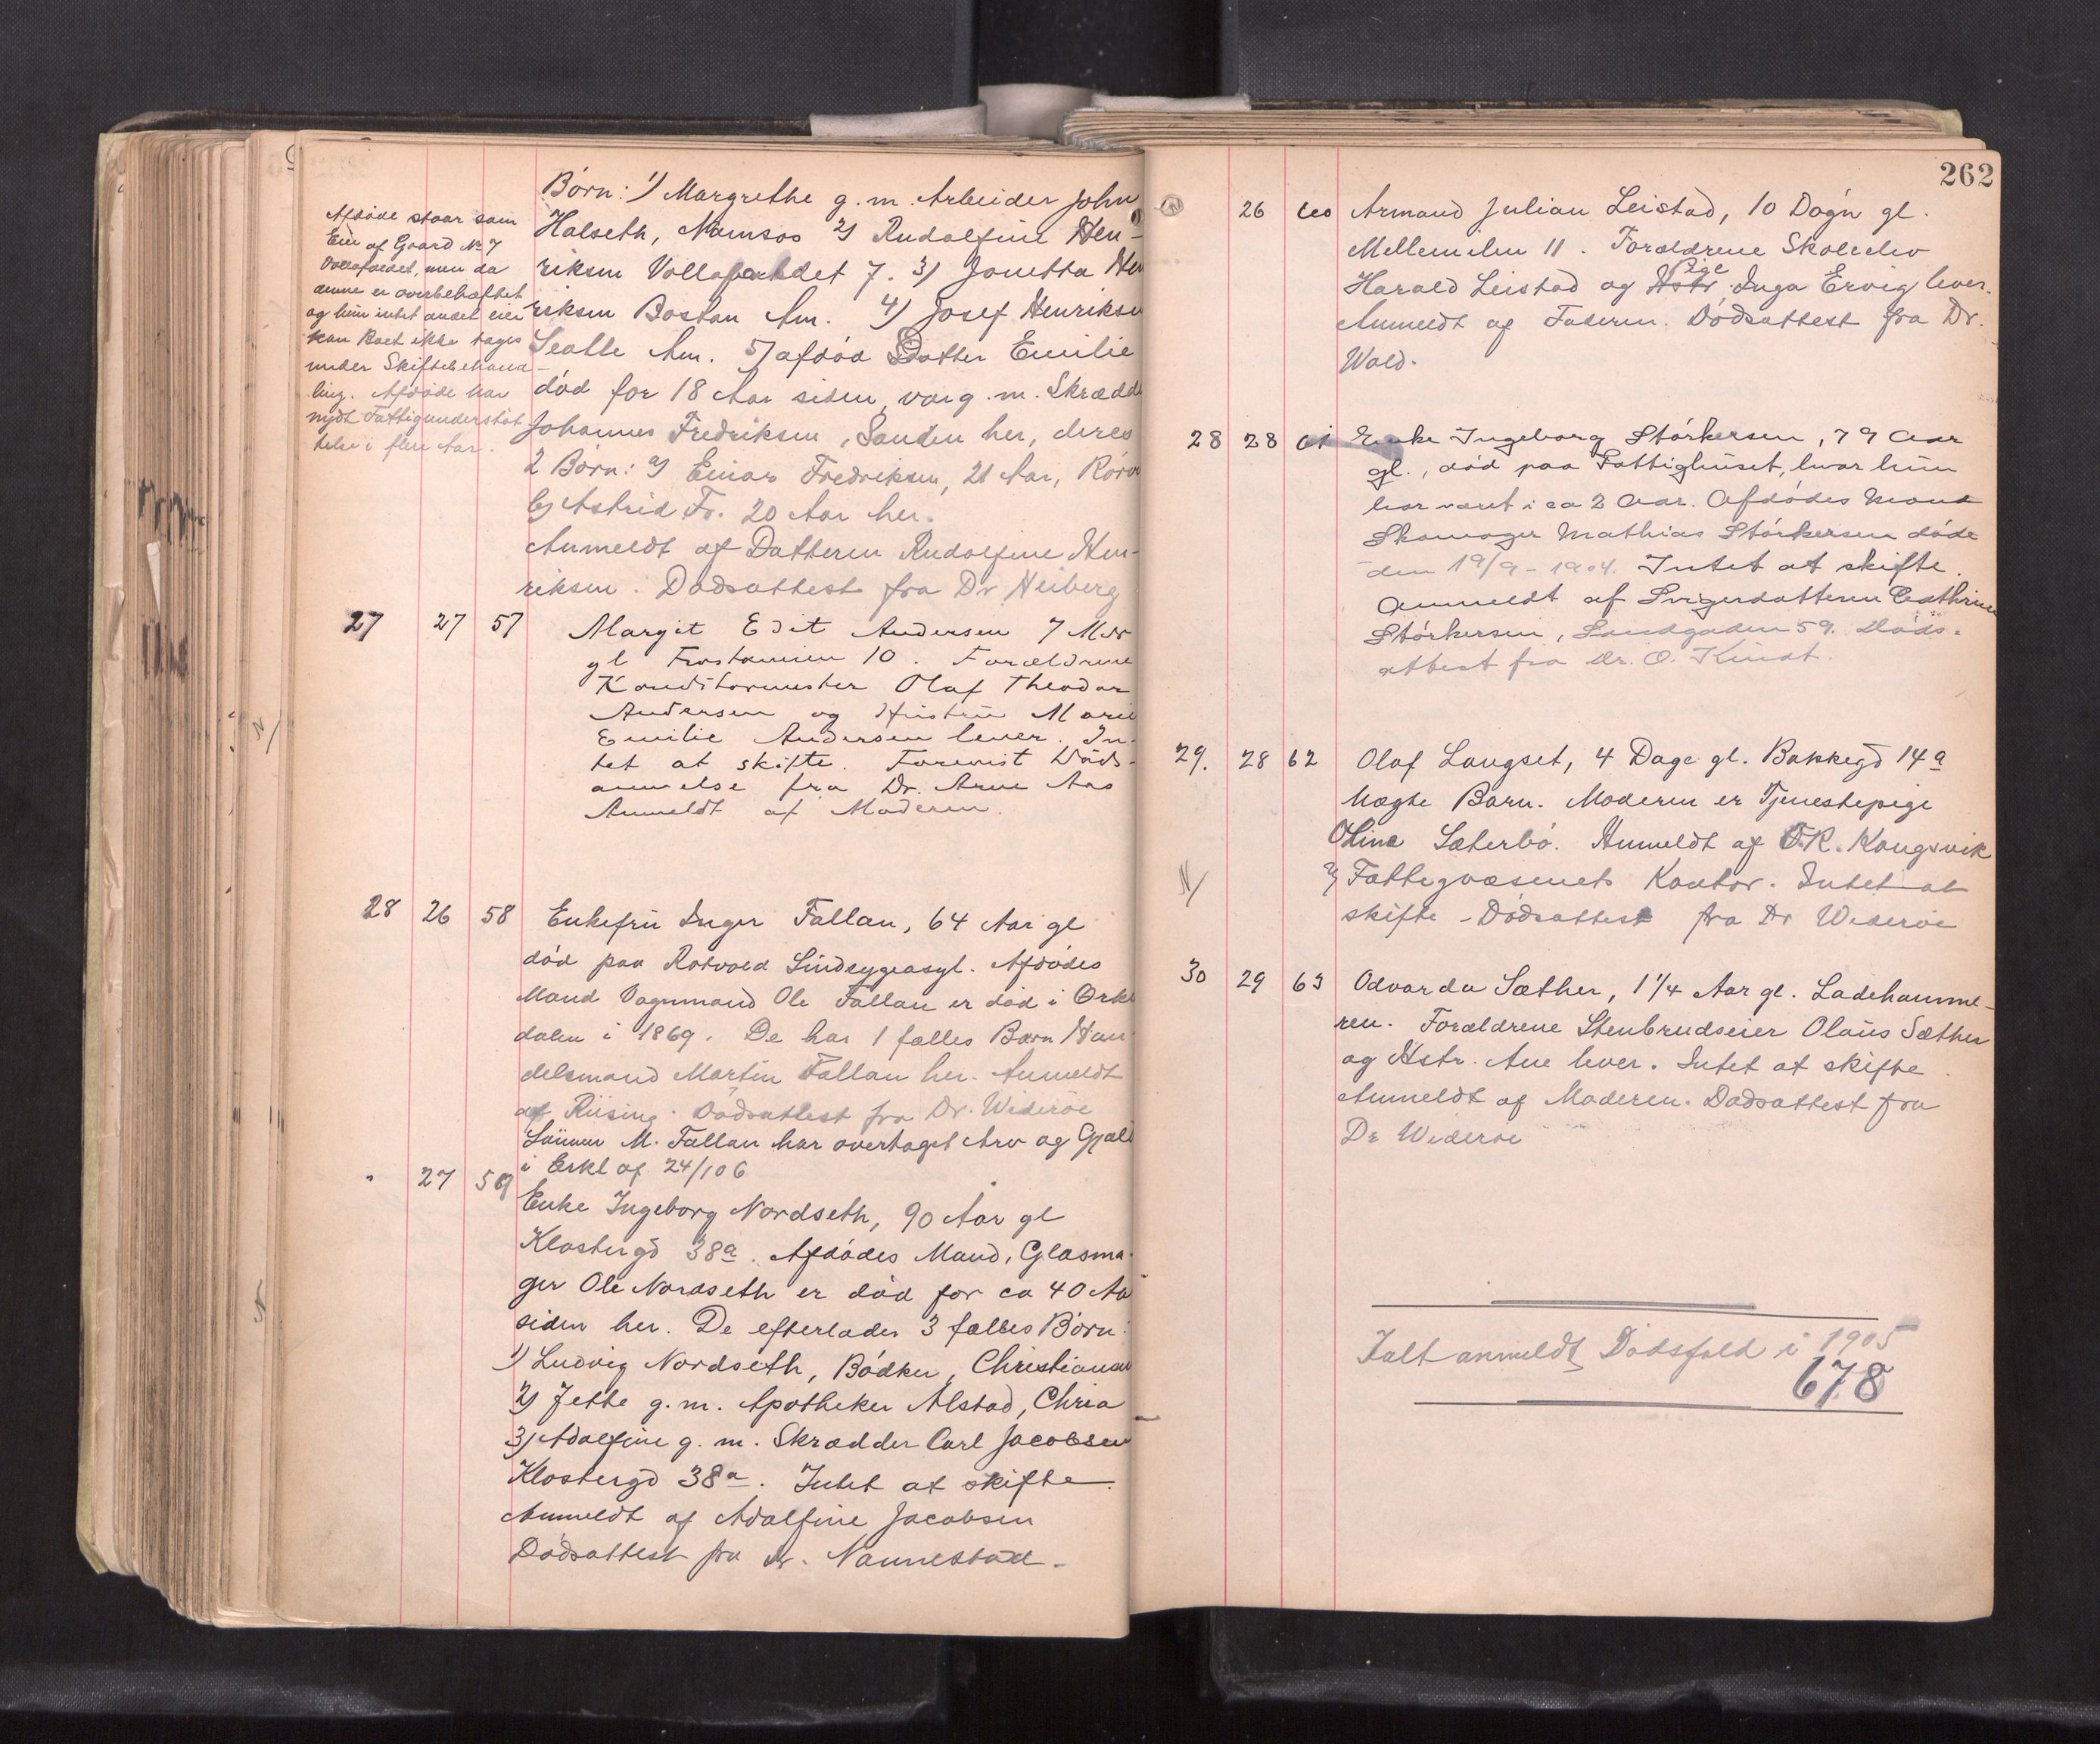 Børn: 1) Margrethe g. m. Arbeider John
Halseth, Namsos 2) Rudolfine Hen-
riksen Vollafaldet 7. 3) Jonetta Hen
riksen Boston Am. 4) Josef Henriksen
Seatle Am. 5) afdød Datter Emilie
død for 18 Aar siden, var g. m. Skrædd
Johannes Fredriksen, Sanden her, deres
2 Børn: a) Einar Fredriksen, 21 Aar, Rørv
b) Astrid Fr. 20 Aar her.
Anmeldt af Datteren Rudolfine Hen-
riksen. Dødsattest fra Dr Heiberg
Afdøde staar som
Eier af Gaard No 7
Vollafaldet, men da
denne er overbehæftet
og hun intet andet eier
kan Boet ikke tages
under Skiftebehand-
ling. Afdøde har
nydt Fattigunderstøt
telse i flere Aar.
27 27 57 Margit Edit Andersen 7 Mdr
gl Frostamien 10. Forældrene
Konditormester Olaf Theodor
Andersen og Hustru Marie
Emilie Andersen lever. In-
tet at skifte. Forevist Døds-
anmelse fra Dr. Arne Aas
Anmeldt af Moderen.
28 26 58 Enkefru Inger Fallan, 64 Aar gl
død paa Rotvold Sindsygeasyl. Afdødes
Mand Vognmand Ole Fallan er død i Orke
dalen i 1869. De har 1 fælles Barn Han
delsmand Martin Fallan her. Anmeldt
af Riising. Dødsattest fra Dr. Widerøe
Sønnen M. Fallan har overtaget Arv og Gjæld
i Erkl af 24/1 06
" 27 59 Enke Ingeborg Nordseth, 90 Aar gl
Klostergd 38a. Afdødes Mand, Glasma-
ger Ole Nordseth er død for ca 40 Aa
siden her. De efterlader 3 fælles Børn:
1) Ludvig Nordseth, Bødker, Christiansu
2) Jette g. m. Apotheker Alstad, Chria
3) Adolfine g. m. Skrædder Carl Jacobsen
Klostergd 38a. Intet at skifte.
Anmeldt af Adolfine Jacobsen
Dødsattest fra dr. Nannestad.
262
26 60 Armand Julian Leistad, 10 Døgn gl.
Mellemilen 11. Forældrene Skoleelev
Harald Leistad og Hstr Pige Inga Ervig lever.
Anmeldt af Faderen. Dødsattest fra Dr.
Wold.
28 28 61 Enke Ingeborg Størkersen, 79 Aar
gl., død paa Fattighuset, hvor hun
har været i ca 2 Aar. Afdødes Mand
Skomager Mathias Størkersen døde
den 19/9 - 1904. Intet at skifte.
Anmeldt af Svigerdatteren Cathrine
Størkersen, Sandgaden 59. Døds-
attest fra Dr. O. Kindt.
29. 28 62 Olaf Langset, 4 Dage gl. Bakkegd 14a
Uægte Barn. Moderen er Tjenestepige
Oline Sæterbø. Anmeldt af O. K. Kongsvik
Fattigvæsenets Kontor. Intet at
skifte - Dødsattest fra Dr Widerøe
N/
30 29 63 Odvarda Sæther, 1 1/4 Aar gl. Ladehamme-
ren. Forældrene Stenbrudseier Olaus Sæther
og Hstr. Ane lever. Intet at skifte.
Anmeldt af Moderen. Dødsattest fra
Dr Widerøe
Ialt anmeldt Dødsfald i 1905
678